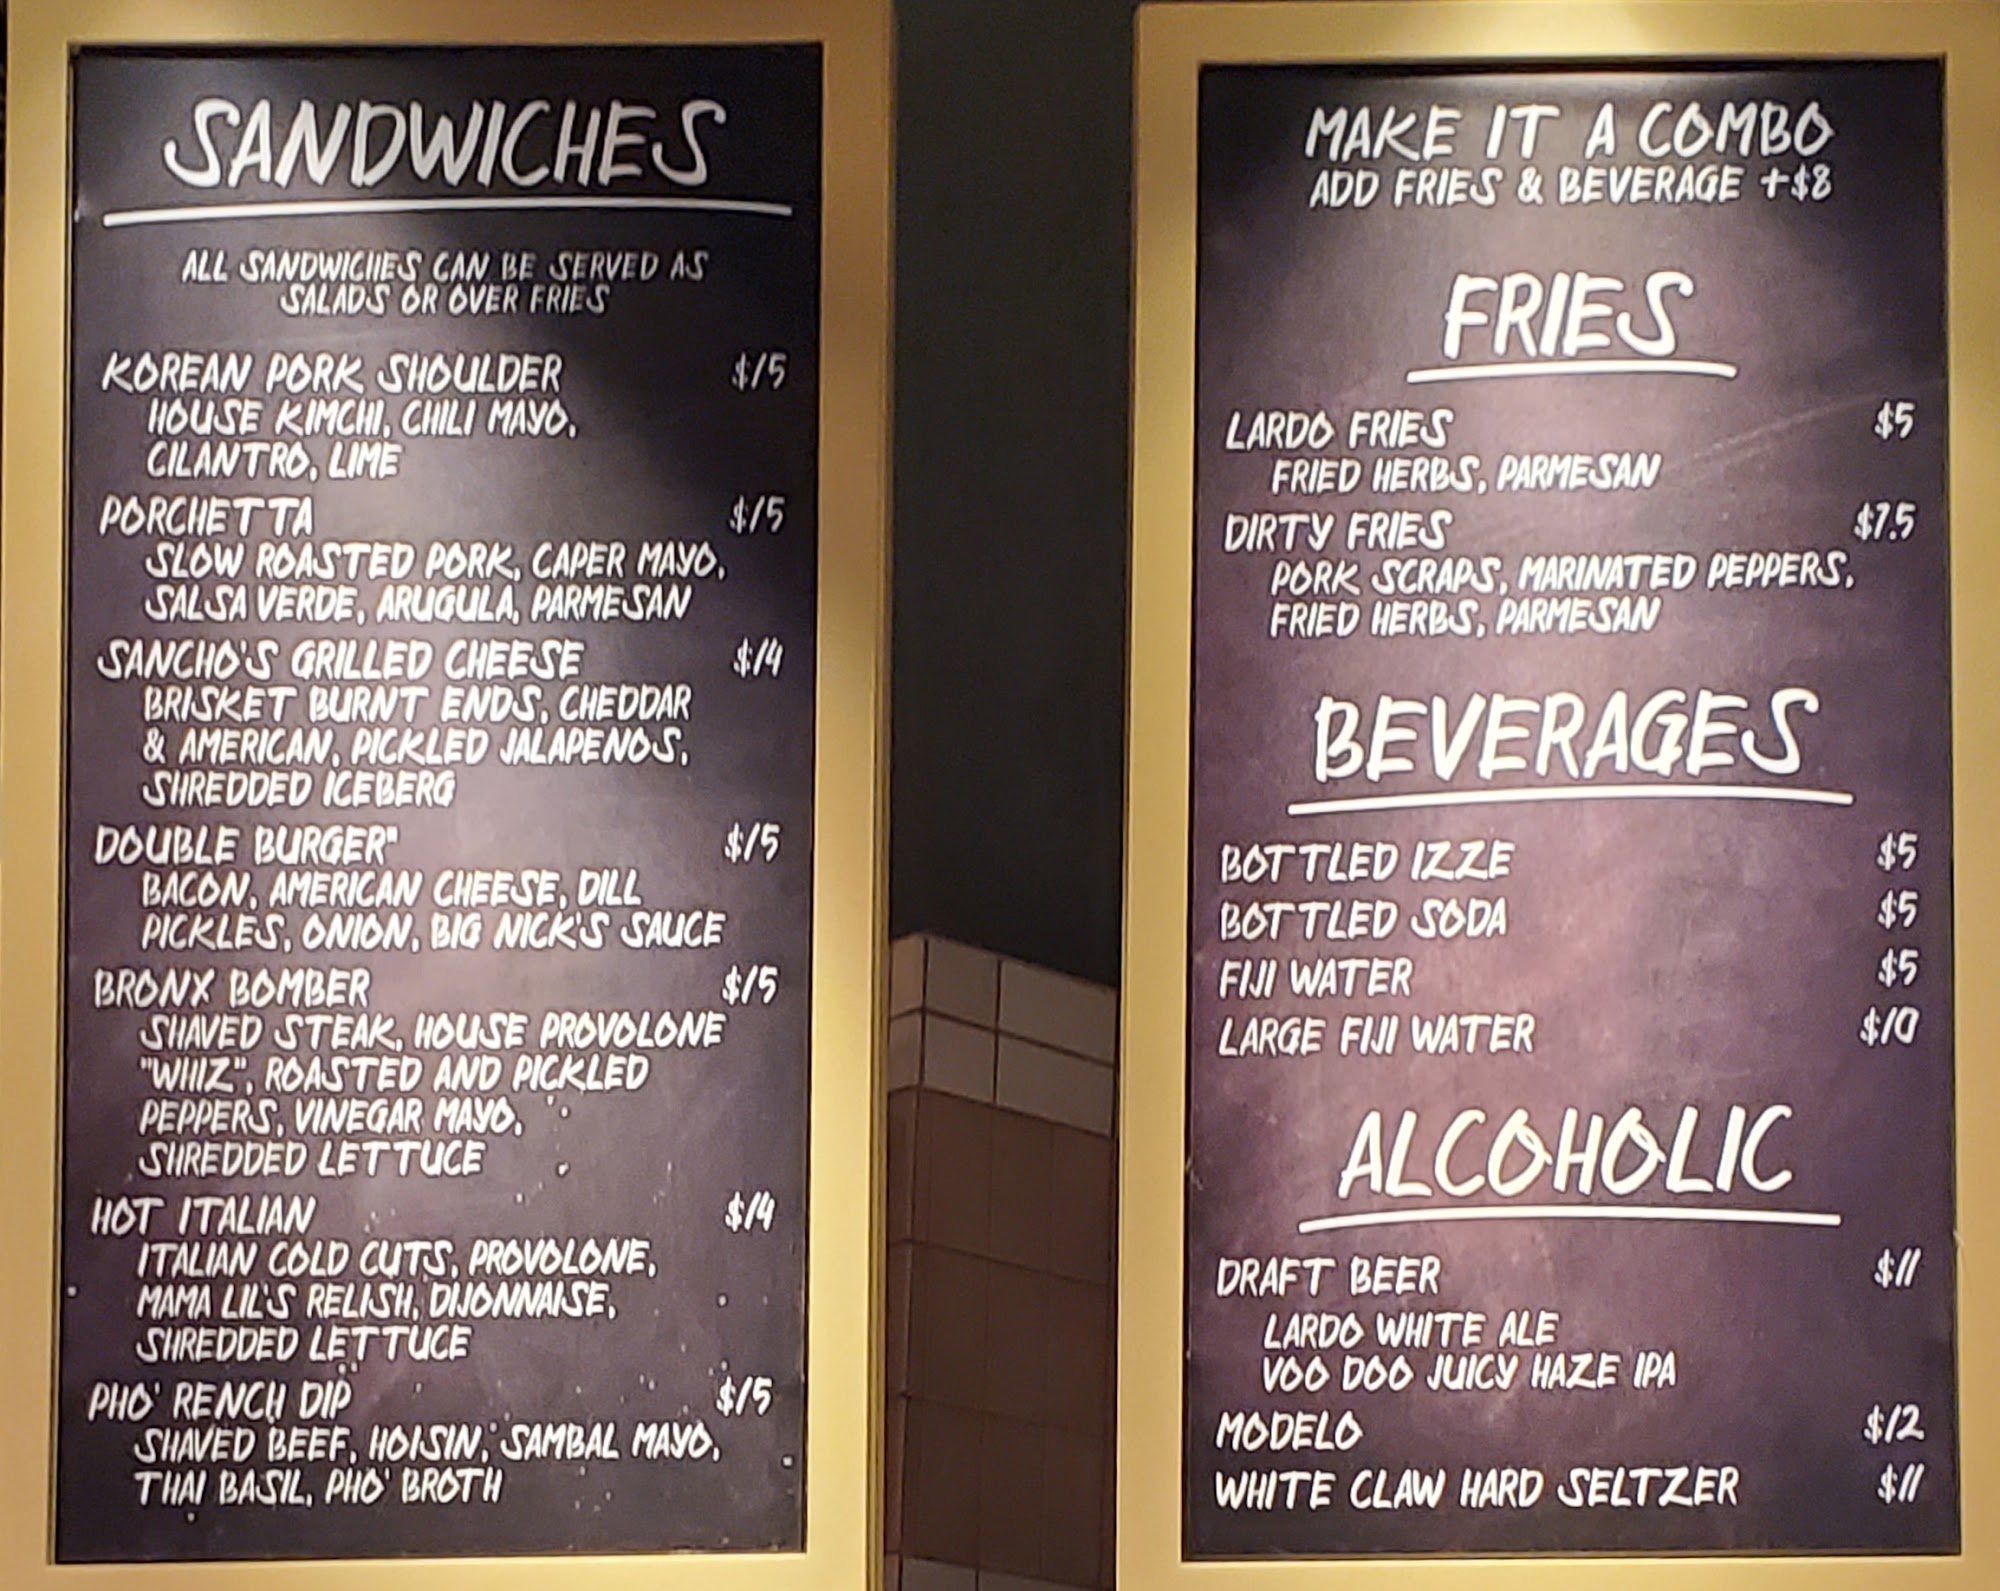 SANDWICHES
ALL SANDWICHES CAN BE SERVED AS
SALADS OR OVER FRIES
KOREAN PORK SHOULDER $15
HOUSE KIMCHI, CHILI MAYO,
CILANTRO, LIME
PORCHETTA $15
SLOW ROASTED PORK, CAPER MAYO,
SALSA VERDE, ARUGULA, PARMESAN
SANCHO'S GRILLED CHEESE $14
BRISKET BURNT ENDS, CHEDDAR
& AMERICAN, PICKLED JALAPENOS,
SHREDDED ICEBERG
DOUBLE BURGER" $15
BACON, AMERICAN CHEESE, DILL
PICKLES, ONION, BIG NICK'S SAUCE
BRONX BOMBER $15
SHAVED STEAK, HOUSE PROVOLONE
"WHIZ", ROASTED AND PICKLED
PEPPERS, VINEGAR MAYO,
SHREDDED LETTUCE
HOT ITALIAN $14
ITALIAN COLD CUTS, PROVOLONE,
MAMA LIL'S RELISH, DIJONNAISE,
SHREDDED LETTUCE
PHO' RENCH DIP $15
SHAVED BEEF, HOISIN, SAMBAL MAYO,
THAI BASIL, PHO' BROTH
MAKE IT A COMBO
ADD FRIES & BEVERAGE +$8
FRIES
LARDO FRIES $5
FRIED HERBS, PARMESAN
DIRTY FRIES $7.5
PORK SCRAPS, MARINATED PEPPERS,
FRIED HERBS, PARMESAN
BEVERAGES
BOTTLED IZZE $5
BOTTLED SODA $5
FIJI WATER $5
LARGE FIJI WATER $10
ALCOHOLIC
DRAFT BEER $11
LARDO WHITE ALE
VOO DOO JUICY HAZE IPA
MODELO $12
WHITE CLAW HARD SELTZER $11